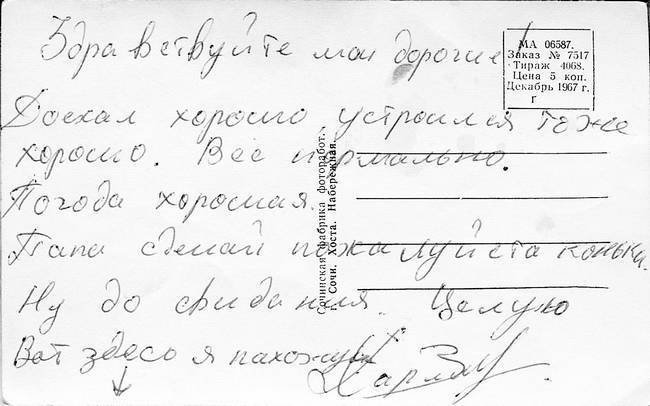 Здравствуйте мои дорогие!
МА 06587.
Заказ № 7517
Тираж 4068.
Цена 5 коп.
Декабрь 1967 г.
г
Доехал хорошо устроился тоже
хорошо. Все нормально.
Погода хорошая.
Папа сделай пожалуйста конька.
Ну до свидания. Целую
Вот здесь я нахожусь
Сочинская фабрика фоторабот.
г. Сочи. Хоста. Набережная.